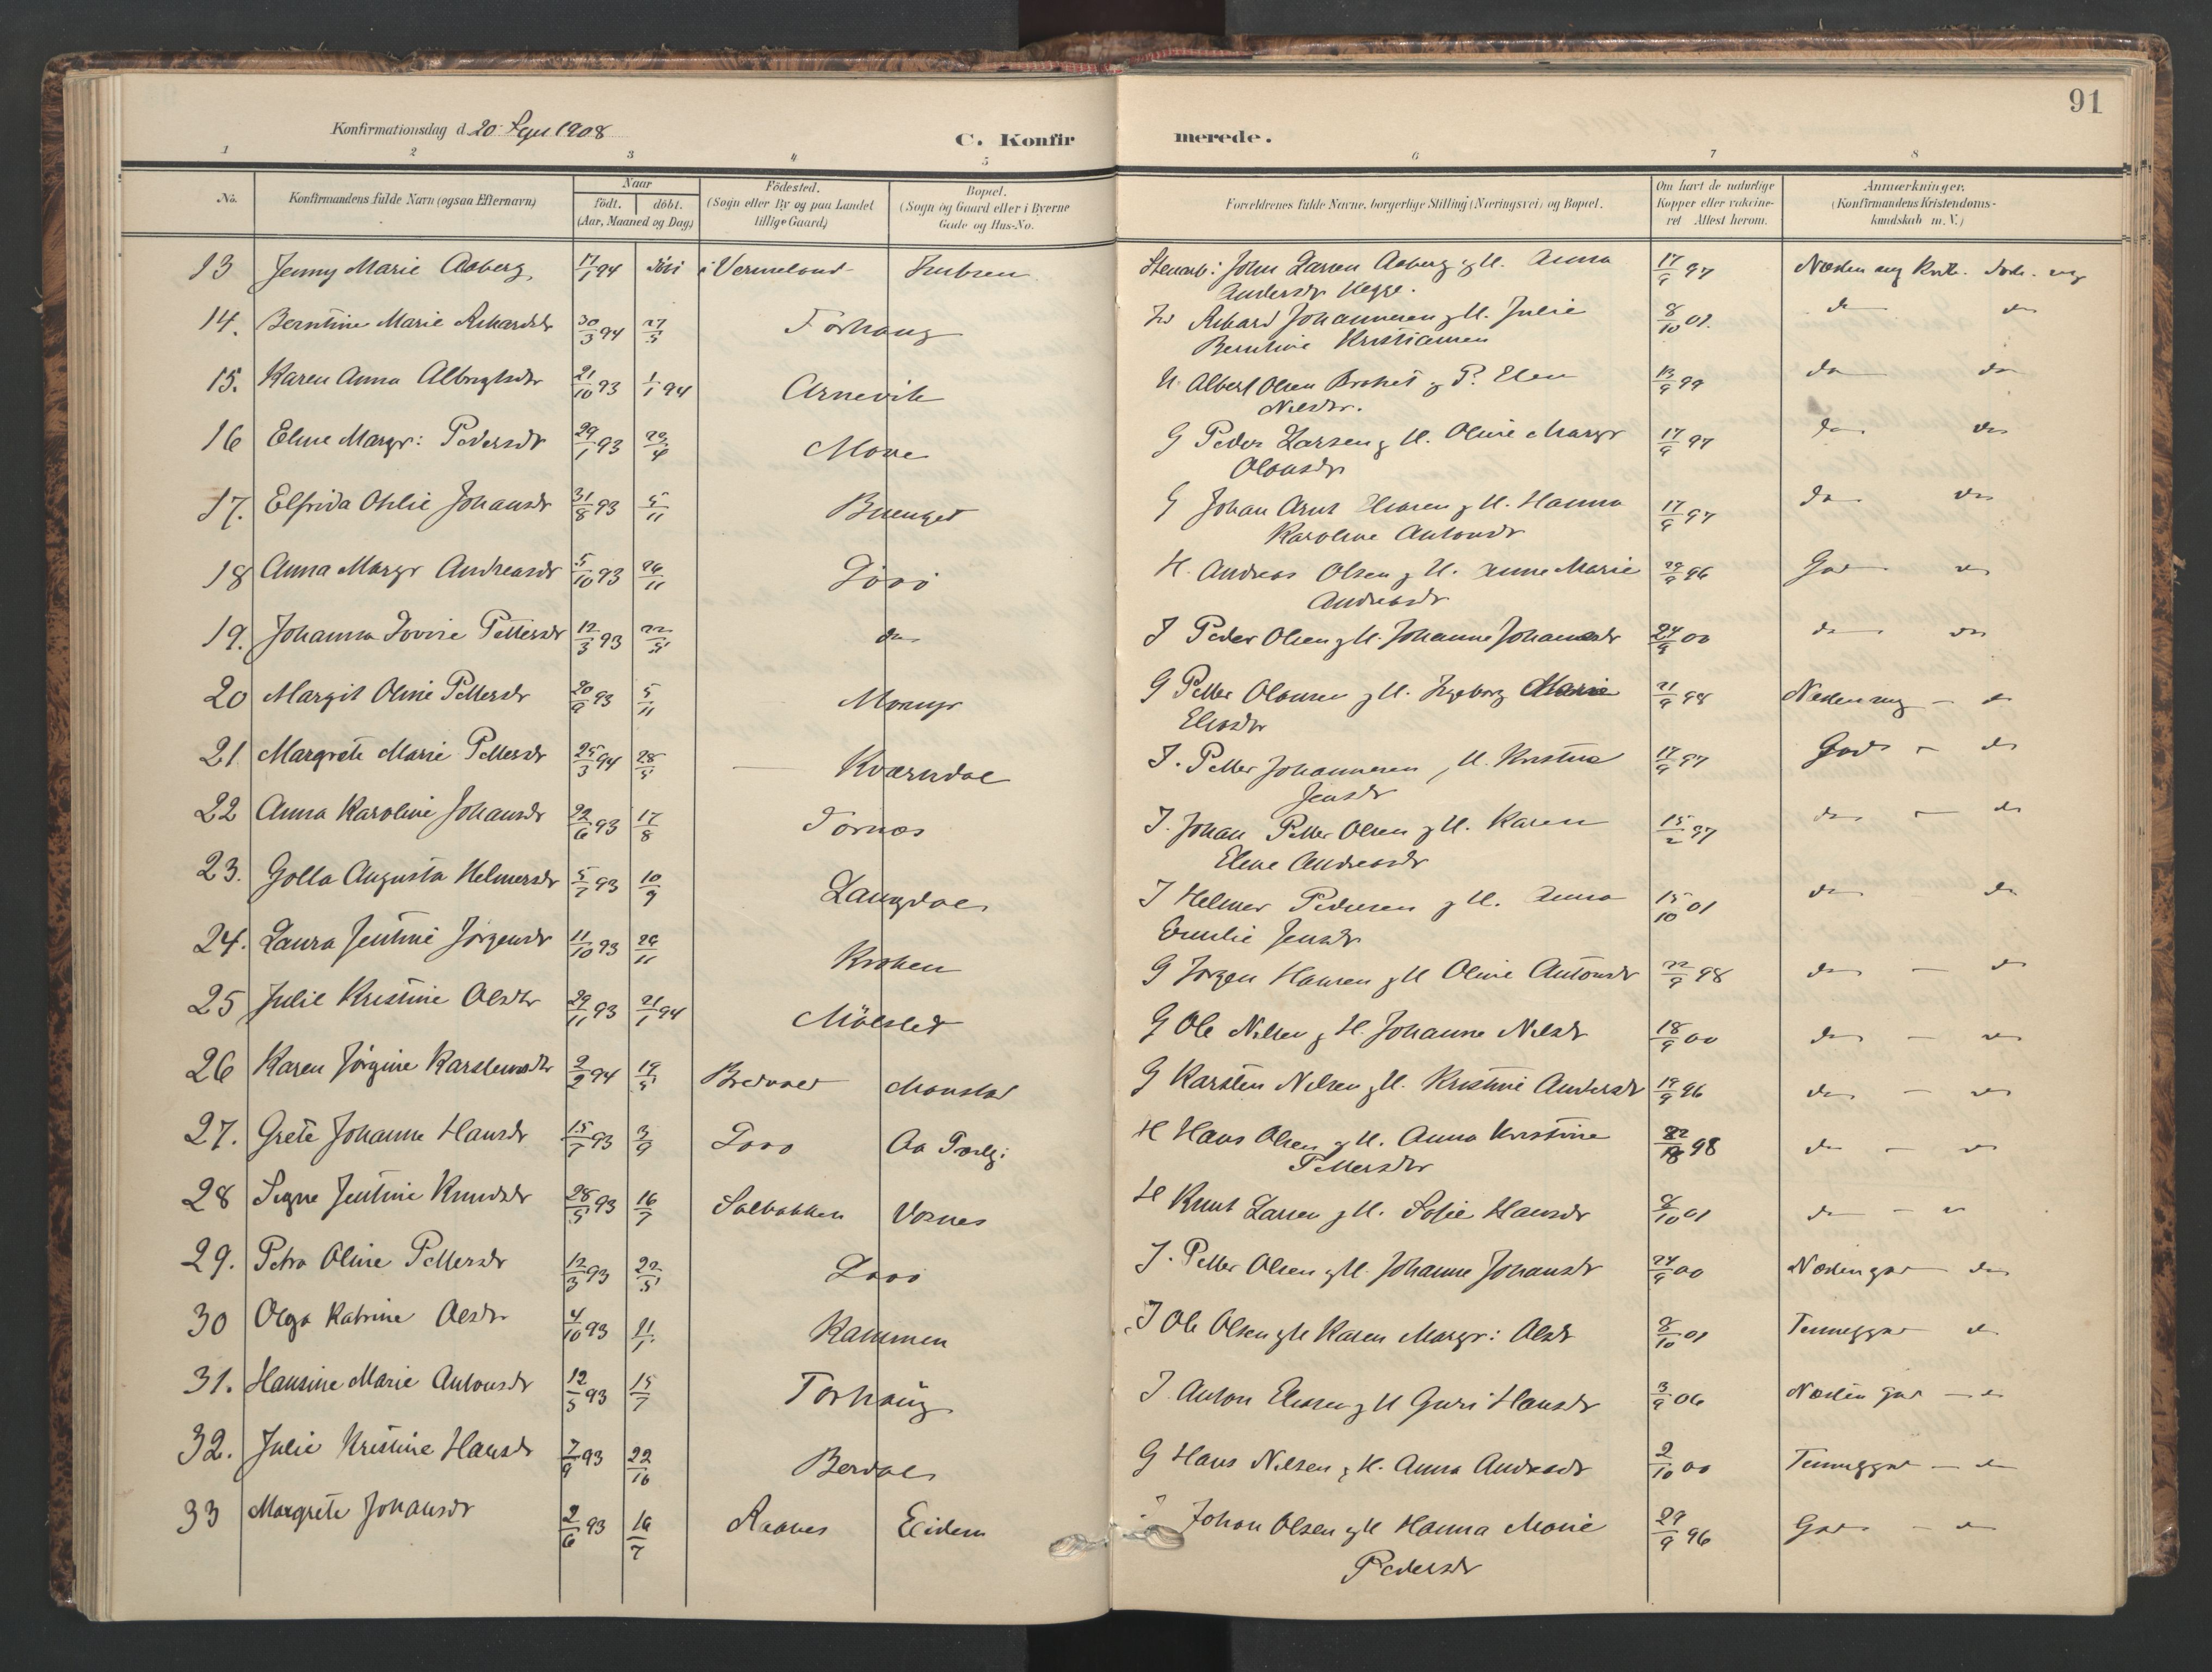 91
Konfirmationsdag d. 20. Sept 1908
C. Konfirmerede.
1 2 3 4 5 6 7 8
No. Konfirmandens fulde Navn (ogsaa Efternavn) Naar födt. döbt. (Aar, Maaned og Dag) Födested. (Sogn eller By og paa Landet tillige Gaard) Bopæl. (Sogn og Gaard eller i Byerne Gade og Hus-No. Forældrenes fulde Navne, borgerlige Stilling (Næringsvei) og Bopæl. Om havt de naturlige Kopper eller vakcineret Attest herom. Anmærkninger. (Konfirmandens Kristendomskundskab m. V.)
13 Jenny Marie Aaberg 17/1 94 i Vermeland John Larsen Aaberg g H. Anna 17/9 97
Andersdr Hegge.
14. Berntine Marie Rikardsdr 30/3 94 27/5 Torhaug Rikard Johannesen g H. Julie 8/10 01. do do
Berntine Kristiansen
15. Karen Anna Albrigtsdr 21/10 93 1/1 94 Arnevik Albert Olsen g P. Elen 13/9 99 do do
Nilsdr.
16 Eline Margr: Pedersdr 29/1 93 23/4 Mone G Peder Larsen g H. Oline Margr 17/9 97 do do
Olausdr
17. Elfrida Otilie Johansdr 31/8 93 5/11 Buenget G Johan Arnt g H. Hanna 17/9 97 do do
Karoline Antonsdr
18 Anna Margr Andreasdr 5/10 93 26/11 H. Andreas Olsen g H. Anne Marie 29/9 96 God do
Andreasdr
19. Johanna Lovise Pettersdr 12/3 93 22/5 do J Peder Olsen g H. Johanne Johansdr 24/9 00 do do
20 Margit Oline Pettersdr 20/9 93 5/11 Momyr G Petter Olausen g H. Ingeborg Marie 21/9 98 do
Eliasdr
21 Margrete Marie Pettersdr 25/3 94 28/5 — Kværndal J. Petter Johannesen, H. Kristine 17/9 97 God - do
Jensdr
22 Anna Karoline Johansdr 22/6 93 17/8 Tornes J. Johan Petter Olsen g H. Karen 15/2 97 do - do
Elene Andreasdr
23. Golla Augusta Helmersdr 5/7 93 10/9 Langdal J Helmer Pedersen g H. Anna 15/10 01 do do
Emilie Jensdr
24. Laura Jentine Jörgensdr 11/10 93 26/11 Kroken G Jörgen Hansen g H Oline Antonsdr 22/9 98 do - do
25 Julie Kristine Olsdtr 29/11 93 21/1 94 Mölslet G Ole Nilsen g H. Johanne Nilsdr 18/9 00 do - do
26 Karen Jörgine Karstensdtr 2/2 94 19/5 Bredvold Monstad G Karsten Nilsen g H. Kristine Andersdr 19/9 96 do - do
27. Grete Johanne Hansdr 15/7 93 3/9 H Hans Olsen g H. Anna Kristine 98 do - do
Pettersdtr
28 Signe Jentine Knudsdr 28/5 93 16/7 Solbakken Vosnes H Knut Larsen g H. Sofie Hansdr 8/10 01 do - do
29. Petra Oline Pettersdr 12/3 93 22/5 J. Petter Olsen g H. Johanne Johansdr 24/9 00 Næstengod do
30 Olga Katrine Olsdr 4/10 93 11 Kammen J Ole Olsen g H Karen Margr: Olsdr 8/10 01 do
31. Hansine Marie Antonsdr 12/5 93 15/7 Torhaug J. Anton g H Guri Hansdr 3/9 06 Næsten god - do
32. Julie Kristine Hansdr 7/9 93 22/10 Berdal G Hans Nilsen g H. Anna Andreasdr 2/10 00 - do
33 Margrete Johansdr 2/6 93 16/7 Raanes Eidem Johan Olsen g H Hanna Marie 29/9 96 God - do
Pedersdr